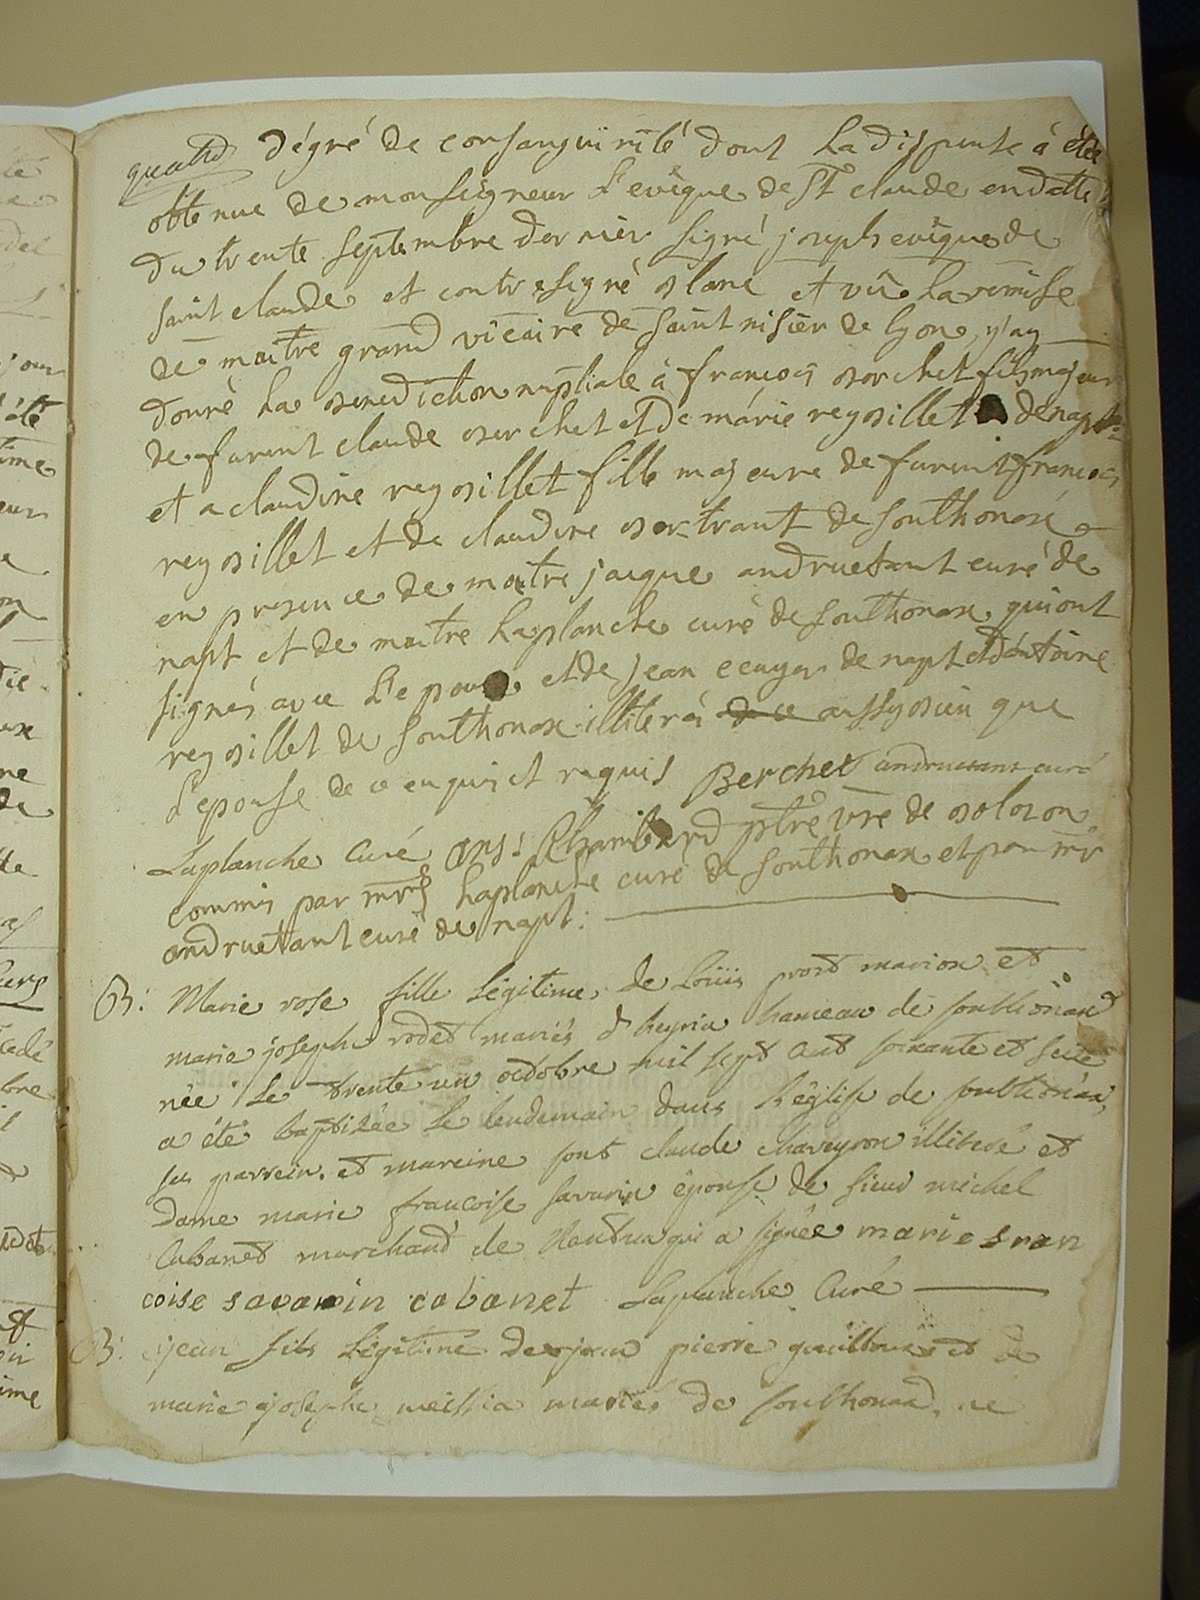 quatre dégré de consanguinité dont la dispense à été
obtenue de monseigneur L'evêque de St claude en datte
du trente septembre dernier signé joseph evêque de
saint claude et contresigné blanc et vû la remise
de maitre grand vicaire de saint nisier de lyon, j'ay
donné la benediction nuptiale à francois berchet fils majeur
de furent claude berchet et de marie reybillet de napt
et a claudine reybillet fille majeure de furent francois
reybillet et de claudine bertrant de Sonthonax
en presence de maitre jacque andruetant curé de
napt et de maitre Laplanche curé de Sonthonax qui ont
signés avec L'epoux et de jean ecuyer de napt et d'antoine
reybillet de Sonthonax illiterés de ce aussy bien que
l'epouse de ce enquis et requis Berchet andruetant curé
Laplanche Curé Chambard ptre vre de bolozon
commis par mrs Laplanche curé de Sonthonax et par mr
andruetant curé de napt:
B: Marie rose fille Légitime de Loüis prost marion et
marie joseph rodet mariés d'heyria hameau de sonthonax
née le trente un octobre mil sept cent soixante et seize
a été baptisée le lendemain dans l'église de sonthonax,
ses parrein et mareine sont claude chaveyron illiteré et
Dame marie francoise savarin épouse de sieur michel
Cabanet marchand de Nantua qui a signée marie fran
coise savarin cabanet Laplanche Curé
B: jean fils Légitime de jean pierre et de
marie joseph mariés de sonthonax, ne